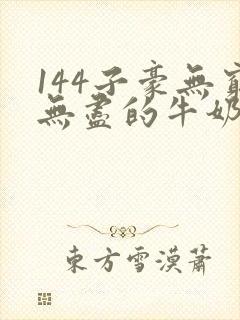 144子豪無窮
無盡的牛奶
東方雪漠蕭